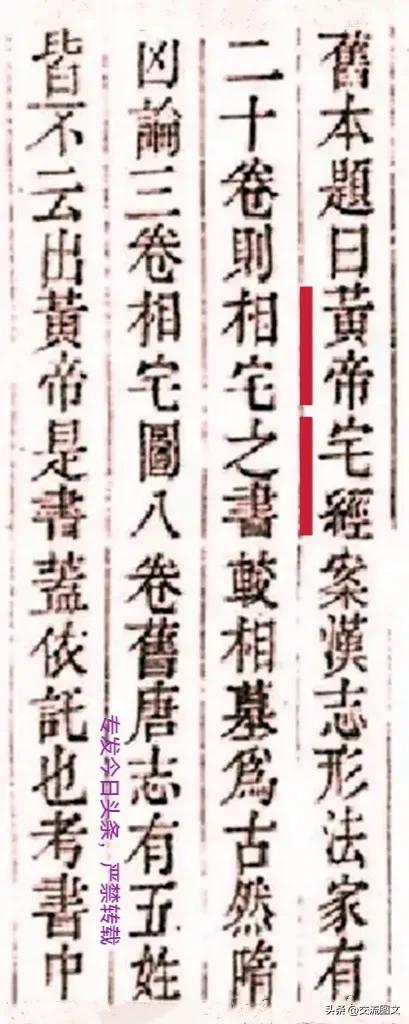 舊本題曰黃帝宅經案漢志形法家有
二十卷則相宅之書較相墓爲古然隋
凶論三卷相宅圖八卷舊唐志有五姓
皆不云出黃帝是書葢依託也考書中
专发今日头条，严禁转载
头条 @交流图文